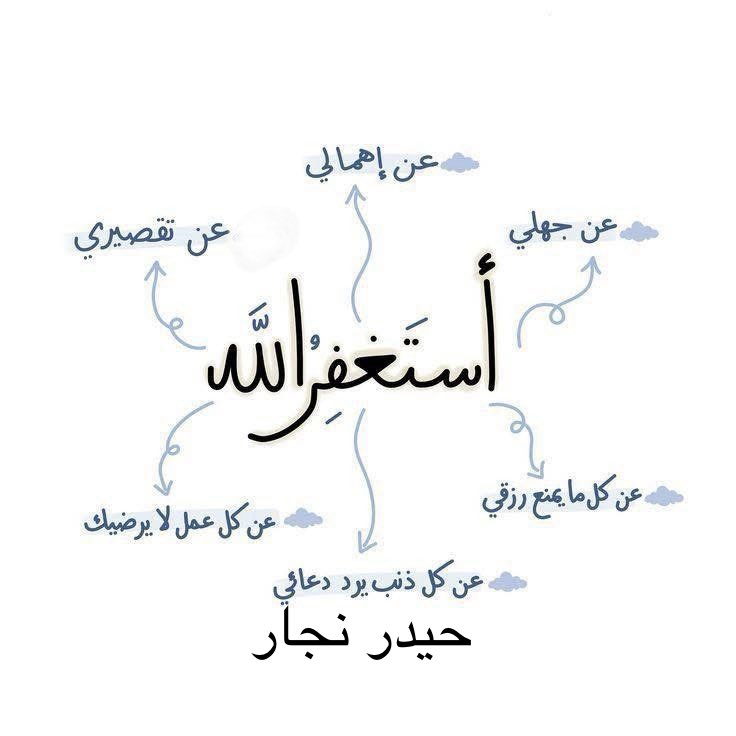 عن إهمالي
عن جهلي
عن تقصيري
أستَغفِرُ اللَّه
عن كل ما يمنع رزقي
عن كل عمل لا يرضيك
عن كل ذنب يرد دعائي
حيدر نجار